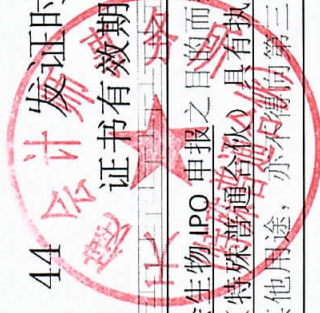 44 发证时
证书有效期
生物 IPO 申报之目的而
（特殊普通合伙）具有执
他用途，亦不得向第三
会计师事务所
（特殊普通合伙）